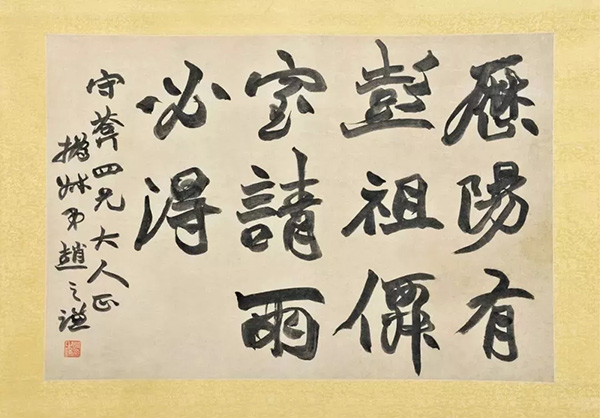 歷陽有
彭祖僊
室請雨
必得
守葊四兄大人正
撝叔弟趙之謙